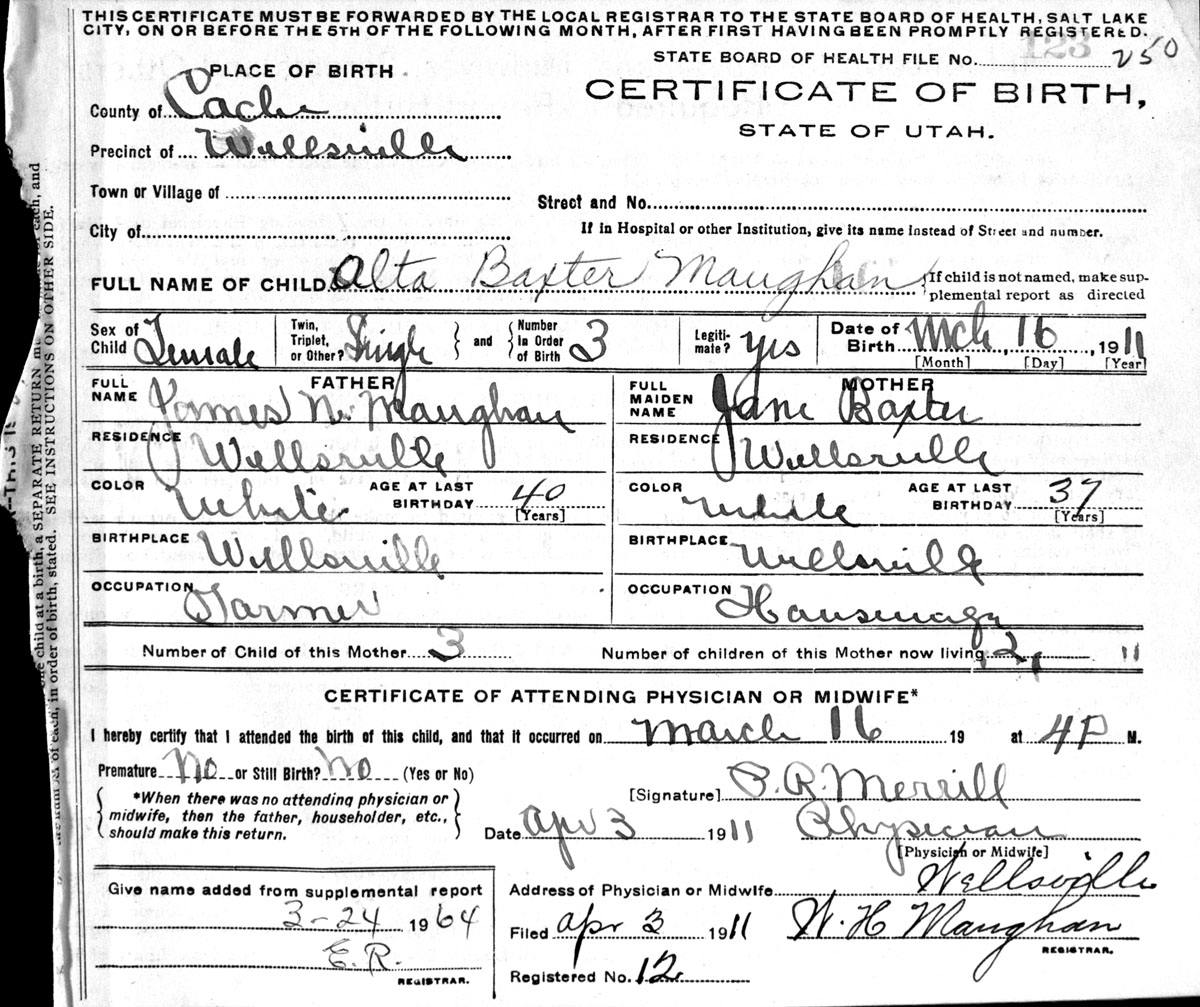 THIS CERTIFICATE MUST BE FORWARDED BY THE LOCAL REGISTRAR TO THE STATE BOARD OF HEALTH, SALT LAKE
CITY, ON OR BEFORE THE 5TH OF THE FOLLOWING MONTH, AFTER FIRST HAVING BEEN PROMPTLY REGISTERED.
123
STATE BOARD OF HEALTH FILE NO. 250
PLACE OF BIRTH
CERTIFICATE OF BIRTH,
STATE OF UTAH.
County of Cache
Precinct of Wellsville
Town or Village of
Street and No.
City of
If in Hospital or other Institution, give its name instead of Street and number.
FULL NAME OF CHILD Alta Baxter Maughan {If child is not named, make sup-
plemental report as directed
Sex of Child Female Twin, Triplet, or Other? Single } and { Number In Order of Birth 3 Legiti-mate? yes Date of Birth Mch 16, 1911
[Month] [Day] [Year]
FATHER MOTHER
FULL NAME James N. Maughan FULL MAIDEN NAME Jane Baxter
RESIDENCE Wellsville RESIDENCE Wellsville
COLOR White AGE AT LAST BIRTHDAY 40 [Years] COLOR White AGE AT LAST BIRTHDAY 37 [Years]
BIRTHPLACE Wellsville BIRTHPLACE Wellsville
OCCUPATION Farmer OCCUPATION
Number of Child of this Mother 3 Number of children of this Mother now living 2
CERTIFICATE OF ATTENDING PHYSICIAN OR MIDWIFE*
I hereby certify that I attended the birth of this child, and that it occurred on March 16 19 11 at 4P M.
Premature No or Still Birth? No (Yes or No)
[Signature] P. R. Merrill
{ *When there was no attending physician or
midwife, then the father, householder, etc.,
should make this return. }
Date Apr 3 1911 Physician
[Physician or Midwife]
Give name added from supplemental report
3-24 1964
E.R.
REGISTRAR.
Address of Physician or Midwife Wellsville
Filed Apr 3 1911 W. H. Maughan
REGISTRAR.
Registered No. 12
one child at a birth, a SEPARATE RETURN each, and
of each, in order of birth, stated. SEE INSTRUCTIONS ON OTHER SIDE.